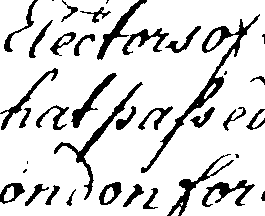 Electors of
hat paſsed
ondon for